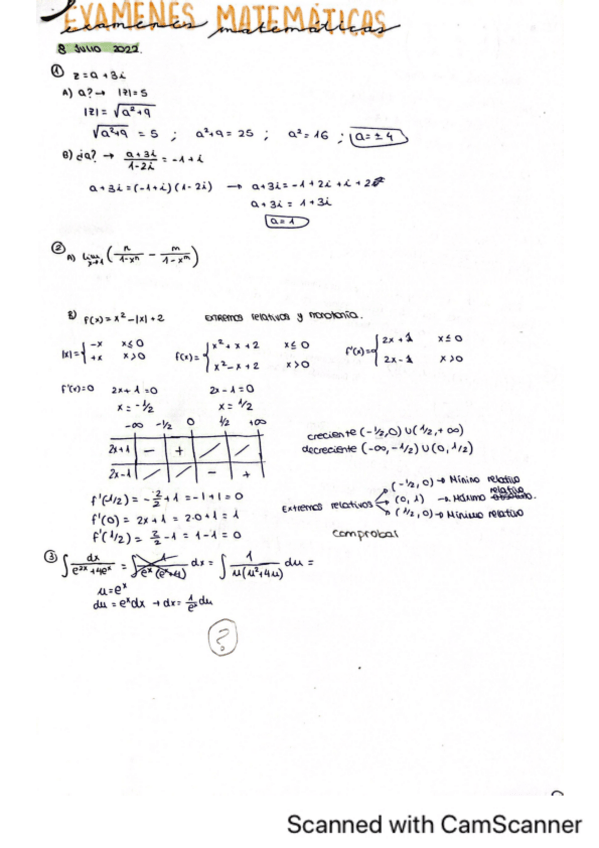 EXAMENES MATEMÁTICAS
examenes matemáticas
8 JULIO 2022.
① z = a + 3i
A) a? → |z| = 5
|z| = √(a² + 9)
√(a²+9) = 5 ; a²+9 = 25 ; a² = 16 ; a = ± 4
B) ¿a? → (a + 3i)/(1 - 2i) = -1 + i
a + 3i = (-1 + i)(1 - 2i) → a + 3i = -1 + 2i + i + 2
a + 3i = 1 + 3i
a = 1
②
A) lim x→1 (n/(1-xⁿ) - m/(1-xᵐ))
B) f(x) = x² - |x| + 2 extremos relativos y monotonía.
|x| = { -x x≤0 f(x) = { x² + x + 2 x≤0 f'(x) = { 2x + 1 x≤0
+x x>0 x² - x + 2 x>0 2x - 1 x>0
f'(x)=0 2x+1 = 0 2x - 1 = 0
x = -1/2 x = 1/2
-∞ -1/2 0 1/2 +∞
2x+1 - + / /
2x-1 / / - +
creciente (-1/2, 0) ∪ (1/2, +∞)
decreciente (-∞, -1/2) ∪ (0, 1/2)
f'(1/2) = -2/2 + 1 = -1 + 1 = 0
f'(0) = 2x + 1 = 2·0 + 1 = 1
f'(1/2) = 2/2 - 1 = 1 - 1 = 0
Extremos relativos
(-1/2, 0) → Mínino relativo
(0, 1) → Máximo relativo.
(1/2, 0) → Mínimo relativo
comprobar
③ ∫ dx/(e²ˣ + 4eˣ) = ∫ 1/(eˣ(eˣ+4)) dx = ∫ 1/(u(u²+4u)) du =
u = eˣ
du = eˣ dx → dx = 1/eˣ du
?
Scanned with CamScanner